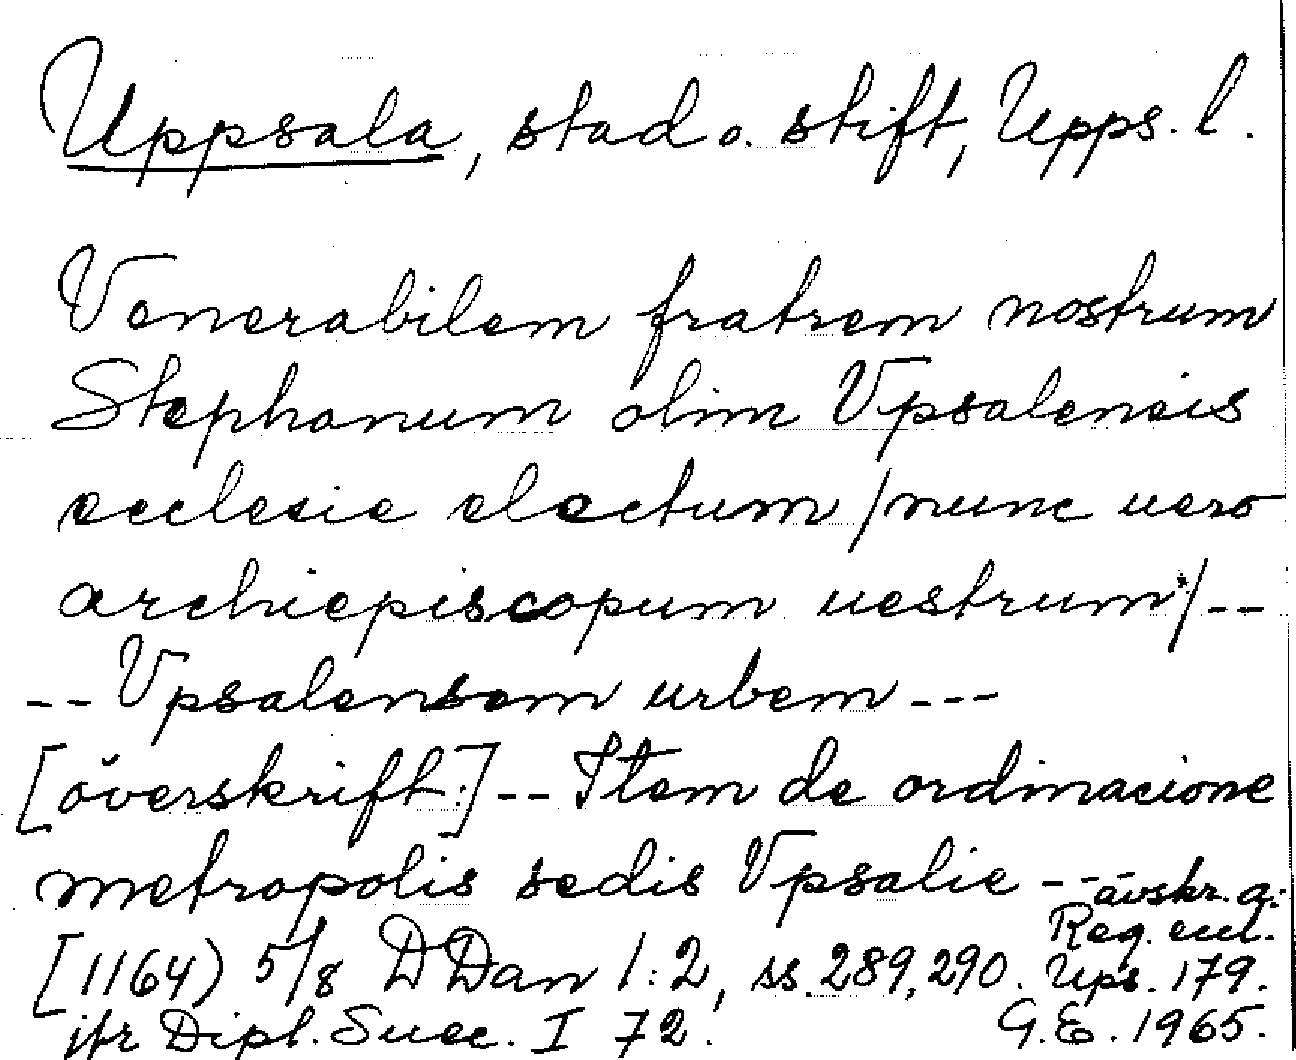 Uppsala, stad o. stift, Upps. l.
Venerabilem fratrem nostrum
Stephanum olim Vpsalensis
ecclesie electum /nunc uero
archiepiscopum uestrum/--
-- Vpsalensem urbem ---
[överskrift:] -- Item de ordinacione
metropolis sedis Vpsalie --- avskr. a:
Reg. eccl.
[1164) 5/8 DDan 1:2, ss. 289, 290. Ups. 179.
jfr Dipl. Suec. I 72. G.E. 1965.